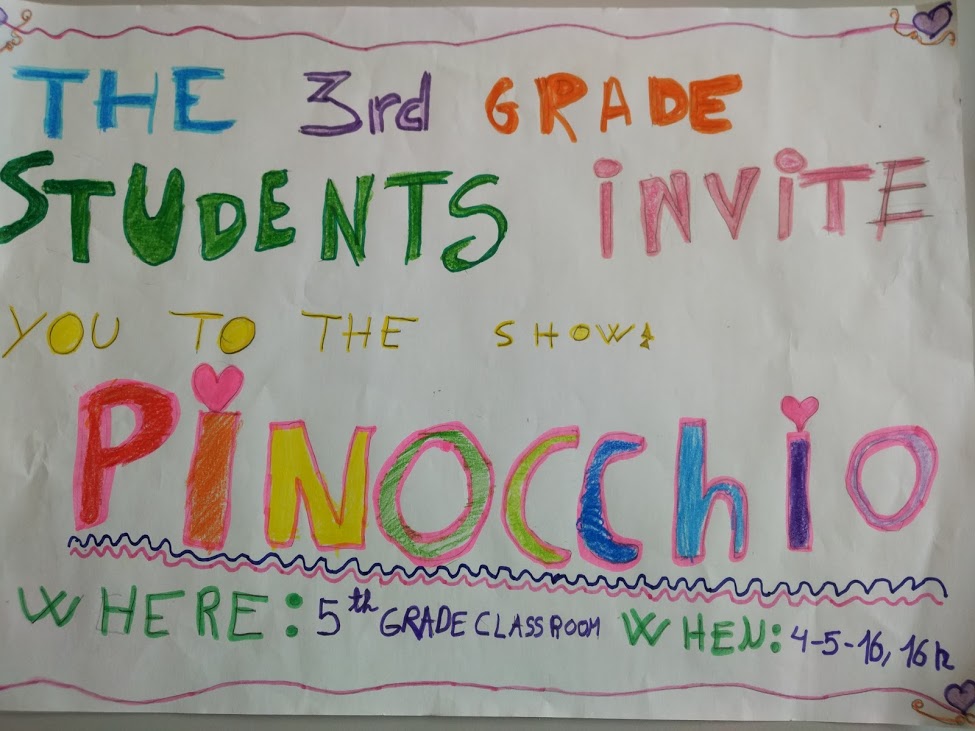 THE 3rd GRADE
STUDENTS iNViTE
YOU TO THE SHOW:
PiNOCChiO
WHERE: 5th GRADE CLASSROOM WHEN: 4-5-16, 16h